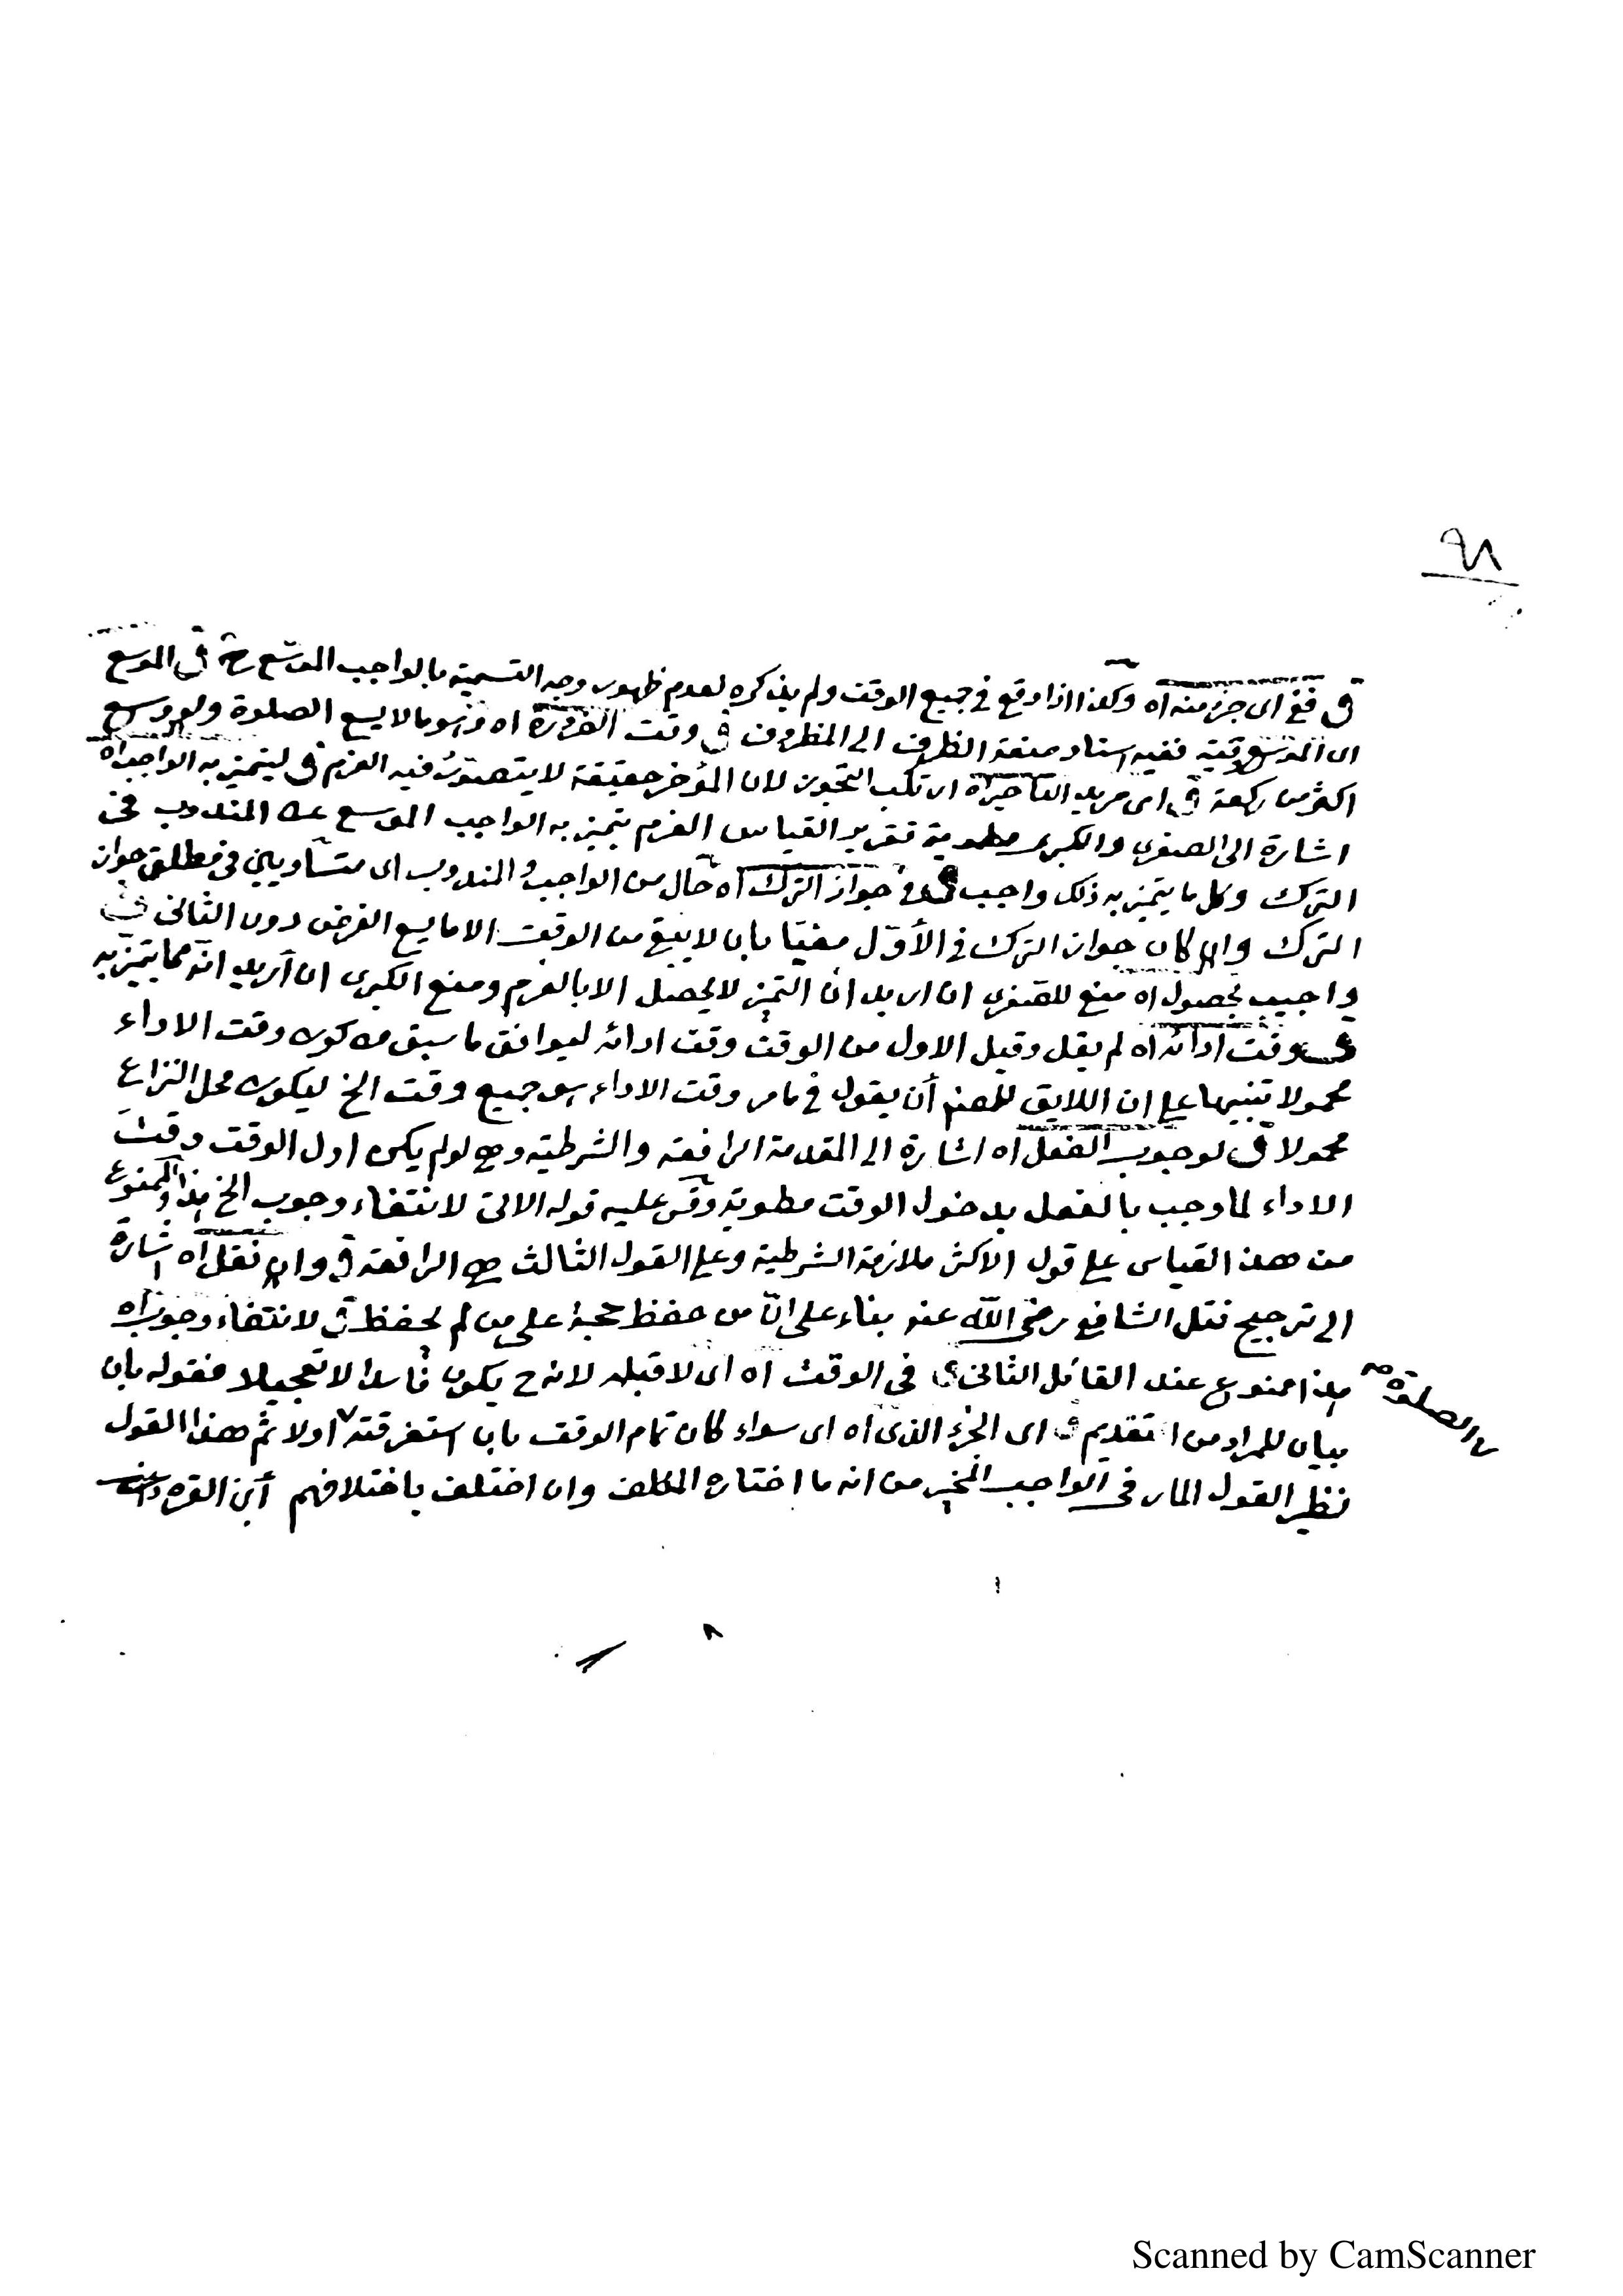 ٩٨
ق ففي اى جزء منه اه وكذا اذا وقع في جميع الوقت ولم يذكره لعدم ظهور وجه التسمية بالواجب الموسّع ح ق الموسع
اى الموسع وقته ففيه اسناد صفة الظرف الى المظروف ق وقت الضرورة اه وهو ما لا يسع الصلوة ولو وسع
اكثر من ركعة ق اى مريد التأخير اه ارتكب التجوز لان المؤخر حقيقة لا يتصور فيه العزم ق ليتميز به الواجب اه
اشارة الى الصغرى والكبرى مطوية تقرير القياس العزم يتميز به الواجب الموسع عن المندوب في
الترك وكل ما يتميز به ذلك واجب ق في جواز الترك اه حال من الواجب والمندوب اى متساويين في مطلق جواز
الترك وان كان جواز الترك في الأول مغيّا بان لا يبقى من الوقت الا ما يسع الفرض دون الثاني
واجيب بحصول اه منع للصغرى ان اريد انّ التميز لا يحصل الا بالعزم ومنع الكبرى ان اريد انه مما يتميز به
ق وقت ادائه اه لم يقل وقيل الاول من الوقت وقت ادائه ليوافق ما سبق من كون وقت الاداء
محمولا تنبيها على ان اللايق للمصنف أن يقول في ما مر وقت الاداء هو جميع وقت الخ ليكون محل النزاع
محمولا ق لوجوب الفعل اه اشارة الى المقدمة الرافعة والشرطية وهي لو لم يكن اول الوقت وقت
الاداء لما وجب بالفعل بدخول الوقت مطوية وقس عليه قوله الآتي لانتفاء وجوب الخ هذا والممنوع
من هذا القياس على قول الاكثر ملازمة الشرطية وعلى القول الثالث هي الرافعة ق وان نقل اه اشارة
الى ترجيح نقل الشافعي رضى الله عنه بناء على انّ من حفظ حجة على من لم يحفظ ق لانتفاء وجوب اه
هذا ممنوع عند القائل الثاني ق في الوقت اه اى لا قبله لانه ح يكون فاسدا لا تعجيلا فقوله بان
بيان للمراد من التقديم ق اى الجزء الذى اه اى سواء كان تمام الوقت بان استغرقته اولا ثم هذا القول
الصلوة صح
نظير القول المار في الواجب المخير من انه ما اختاره المكلف وان اختلف باختلافهم أبن القره داغى
Scanned by CamScanner